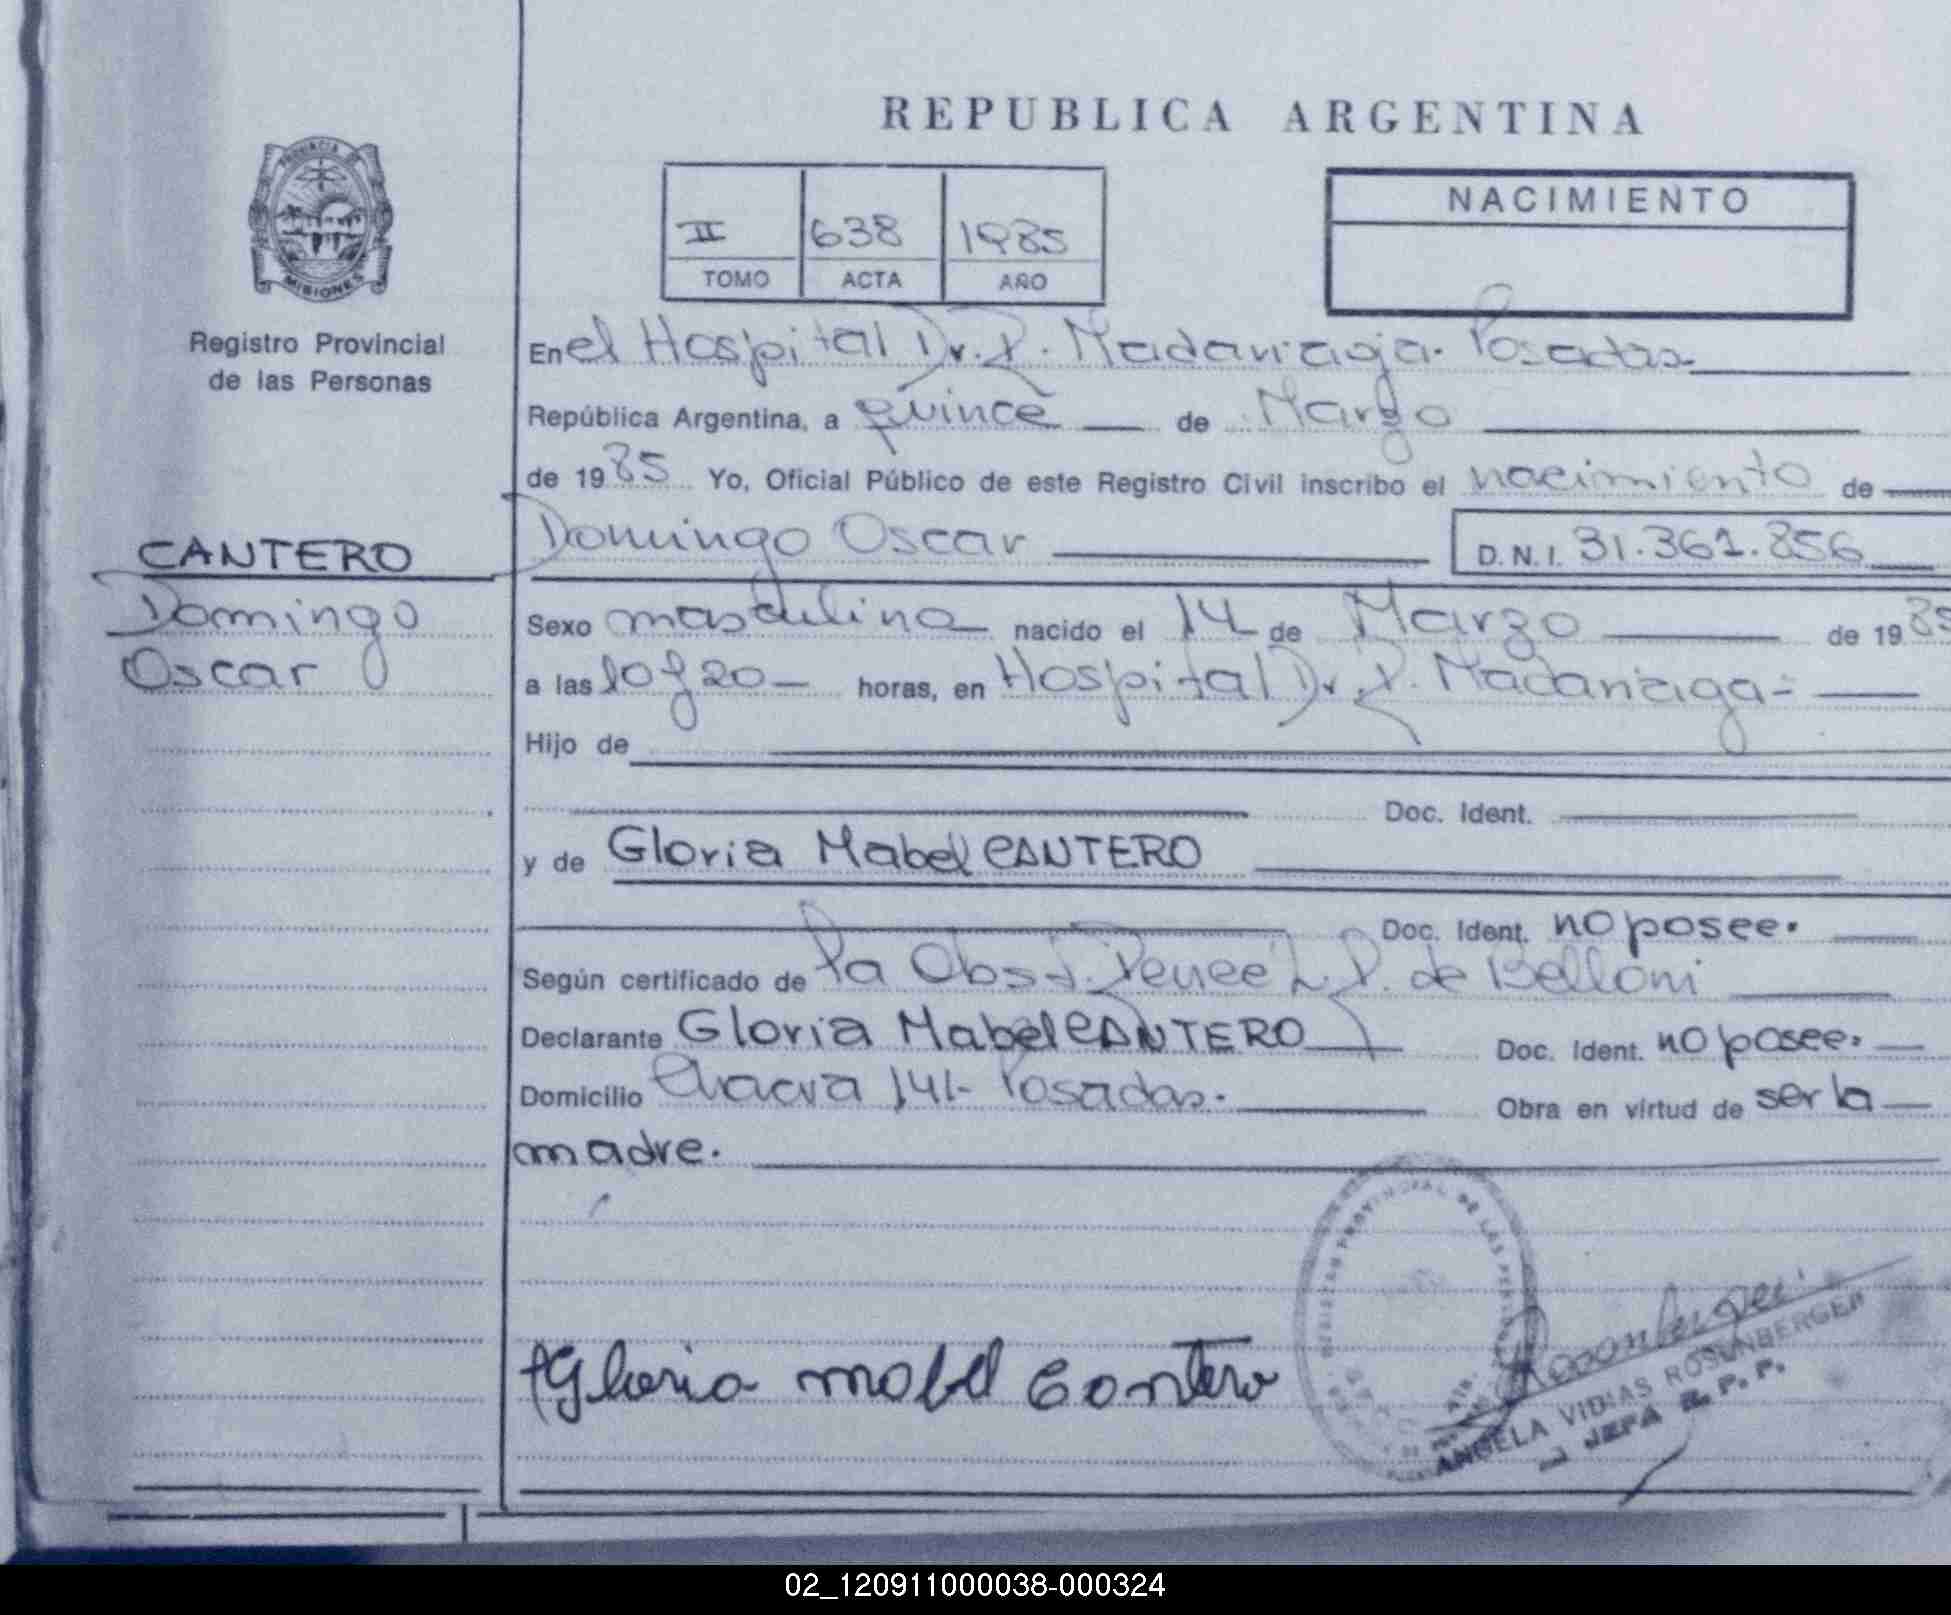 REPUBLICA ARGENTINA
PROVINCIA DE
MISIONES
Registro Provincial
de las Personas
II 638 1985
TOMO ACTA AÑO
NACIMIENTO
En el Hospital Dr. R. Madariaga. Posadas
República Argentina, a quince de Marzo
de 1985 Yo, Oficial Público de este Registro Civil inscribo el nacimiento de
CANTERO
Domingo
Oscar
Domingo Oscar D.N.I. 31.361.856
Sexo masculino nacido el 14 de Marzo de 1985
a las 10 y 20 horas, en Hospital Dr. R. Madariaga
Hijo de
Doc. Ident.
y de Gloria Mabel CANTERO
Doc. Ident. no posee.
Según certificado de la Obst. Renee L. R. de Belloni
Declarante Gloria Mabel CANTERO Doc. Ident. no posee.
Domicilio Chacra 141- Posadas. Obra en virtud de ser la
madre.
REGISTRO PROVINCIAL DE LAS PERSONAS
Gloria mabel Cantero
ANGELA VIDIAS ROSENBERGER
JEFA R. P. P.
02_120911000038-000324